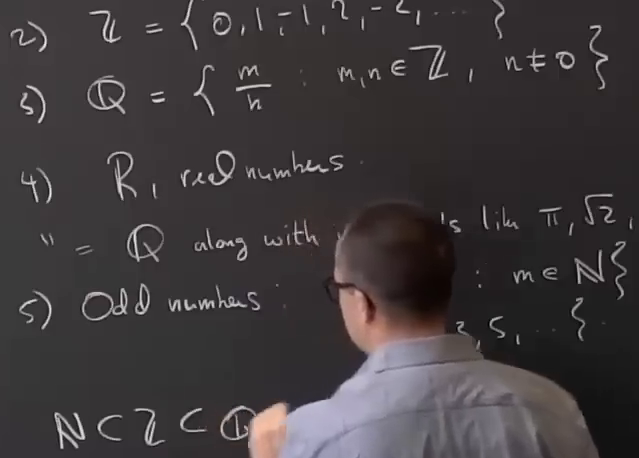 2) ℤ = {0, 1, -1, 2, -2, ... }
3) ℚ = { m/n : m,n ∈ ℤ, n ≠ 0 }
4) R, real numbers.
" = ℚ along with like π, √2,
5) Odd numbers : : m ∈ ℕ}
3, 5, ... }.
ℕ ⊂ ℤ ⊂ ℚ